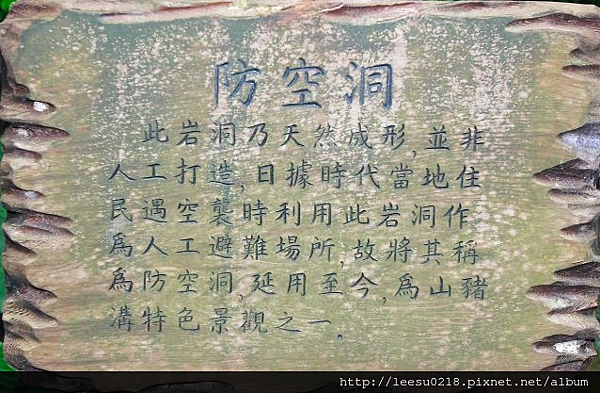 防空洞
此岩洞乃天然成形,並非
人工打造,日據時代當地住
民遇空襲時利用此岩洞作
為人工避難場所,故將其稱
為防空洞,延用至今,為山豬
溝特色景觀之一。
http://leesu0218.pixnet.net/album